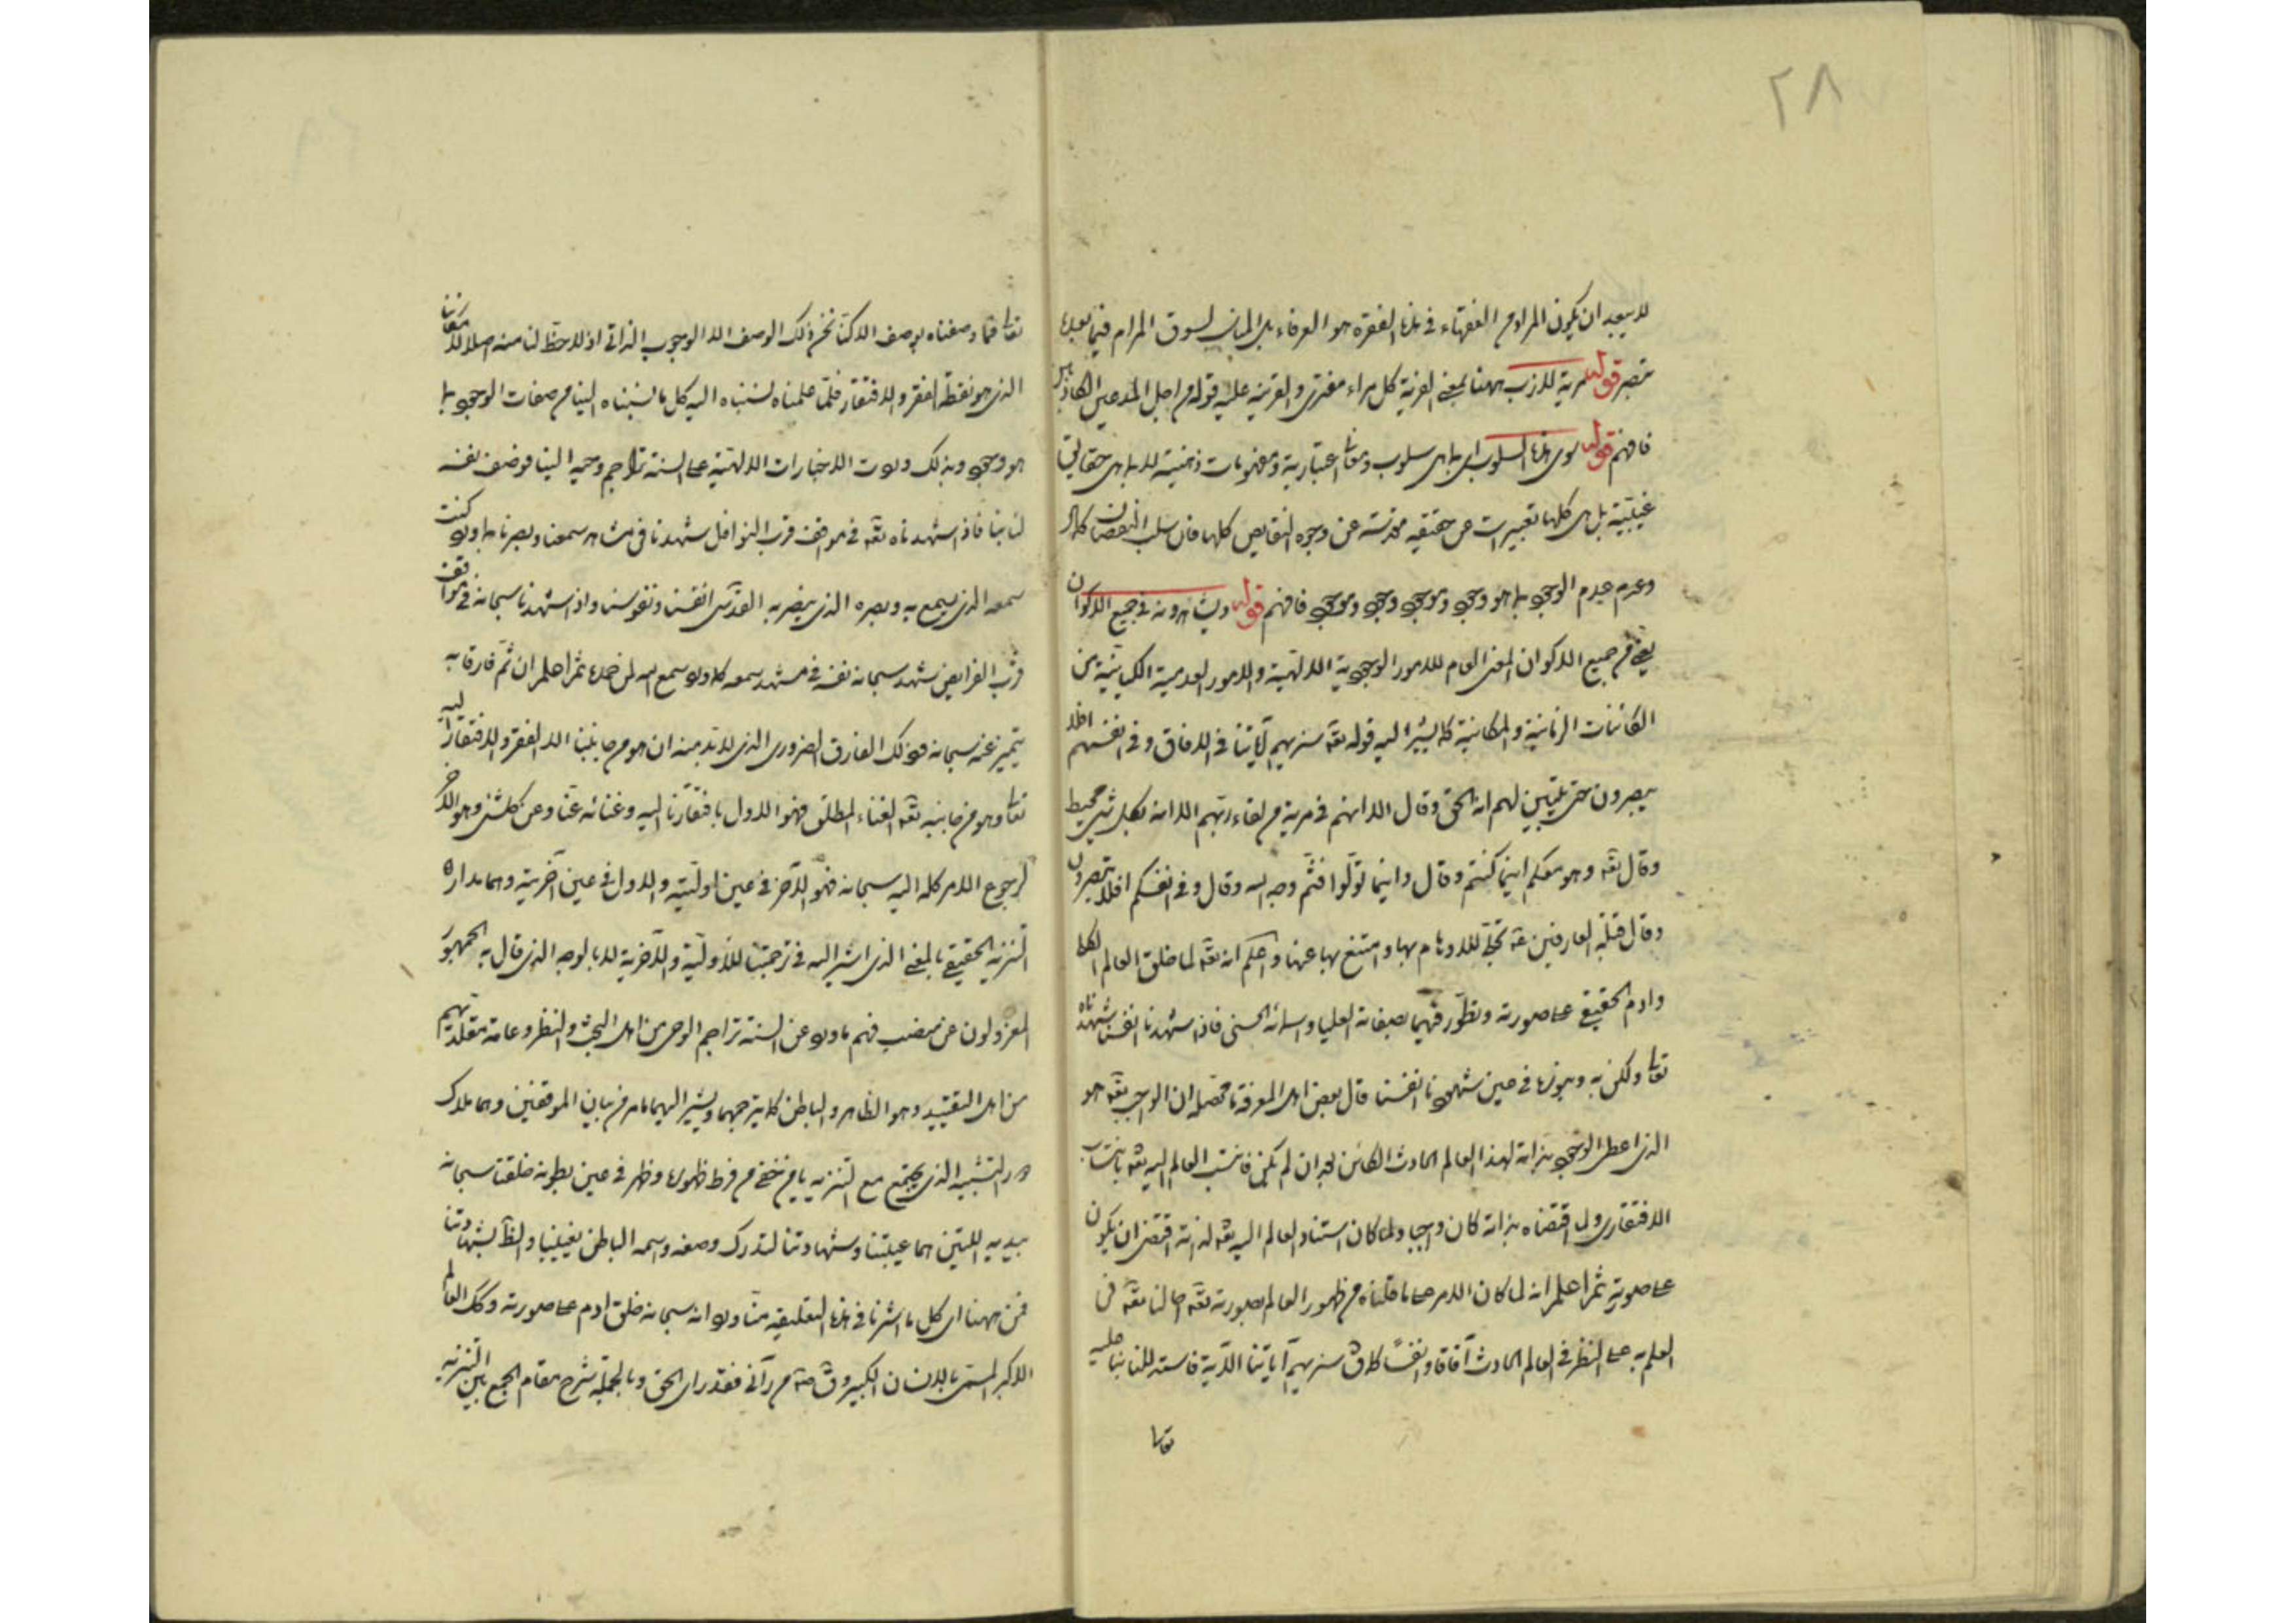 ٢٨
لا يبعد ان يكون المراد من الفقهاء في هذه الفقرة هو العرفاء بل المناسب لسوق المرام فيما بعدها
تبصر قوله مرية الازب ههنا بمعنى الفرية كل مراء مفترى والقرينة عليه قوله من اجل المدعين الكاذبين
فافهم قوله سوى هذه السلوب اى ما هى سلوب ومعان اعتبارية ومفهومات ذهنية لا ما هى حقائق
غيبية بل هى كلها تعبيرات عن حقيقة مقدسة عن وجوه النقايص كلها فان سلب النقصان كمال
وعدم عدم الوجود بما هو وجود وموجود وجود وموجود فافهم قوله ويشاهدونه في جميع الاكوان
يعنى من جميع الاكوان المعنى العام للامور الوجودية الالهية والامور العدمية الكيانية من
الكائنات الزمانية والمكانية كما يشير اليه قوله تعه سنريهم آياتنا في الافاق وفى انفسهم افلا
يبصرون حتى يتبين لهم انه الحق وقال الا انهم في مرية من لقاء ربهم الا انه بكل شئ محيط
وقال تعه وهو معكم اينما كنتم وقال واينما تولوا فثم وجه الله وقال وفى انفسكم افلا تبصرون
وقال قبلة العارفين عه تجلى للاوهام بها وامتنع بها عنها واعلم انه تعه لما خلق العالم
وادم الحقيقى على صورته وتطور فيهما بصفاته العليا واسمائه الحسنى فاذا شهدنا انفسنا شهدناه
تعالى ولكن به وبنوره في حين شهود نا انفسنا قال بعض اهل المعرفة ما محصله ان الواجب تعه هو
الذى اعطى الوجود بذاته لهذا العالم الحادث الكائن بعد ان لم يكن فانتسب العالم اليه تعه بانتساب
الافتقارى ولما اقتضاه بذاته كان واجبا ولما كان استناد العالم اليه تعه لذاته اقتضى ان يكون
على صورته ثم اعلم انه لما كان الامر على ما قلناه من ظهور العالم بصورته تعه احالنا تعه في
العلم به على النظر في العالم الحادث آفاقا وانفسا كما قال سنريهم آياتنا الآية فاستدللنا بنا عليه
تعالى
تعالى فما وصفناه بوصف الا كنا نحن ذلك الوصف الا الوجوب الذاتى اذ لا حظ لنا منه اصلا
الذى هو نقطة الفقر والافتقار فلما علمناه نسبناه اليه كل ما نسبناه الينا من صفات الوجود بما
هو وجود وبذلك وردت الاخبارات الالهية على السنة تراجم وحيه الينا فوصف نفسه
لنا بنا فاذا شهدناه تعه في موقف قرب النوافل شهدنا في مشاهد سمعنا وبصرنا كما ورد كنت
سمعه الذى يسمع به وبصره الذى يبصر به انفسنا ونفوسنا واذا شهدنا سبحانه في مواقف
قرب الفرايض شهد سبحانه نفسه في مشهد سمعه كما ورد سمع الله لمن حمده ثم اعلم ان ثم فارقا به
يتميز عنه سبحانه فذلك الفارق الضرورى الذى لا بد منه ان هو من جانبنا الا الفقر والافتقار اليه
تعالى وهو من جانبه تعه الغناء المطلق فهو الاول بافتقارنا اليه وغنائه عنا وعن كل شئ وهو الآخر
لرجوع الامر كله اليه سبحانه فهو الآخر في عين اوليته والاول في عين آخريته وهما مداره
التنزيه الحقيقى بالمعنى الذى اشير اليه في ترجمتنا للأولية والآخرية لا بالوجه الذى قال به الجمهور
المعزولون عن منصب فهم ما ورد عن السنة تراجم الوحى من اهل البحث والنظر وعامة مقلديهم
من اهل التقييد وهو الظاهر والباطن كما يترجمهما ويشير اليهما ما مر من بيان الموقفين وهما ملاك
التشبيه الذى يجتمع مع التنزيه يا من خفى من فرط ظهوره وظهر في عين بطونه خلقنا سبحانه
بيديه اللتين هما غيبتنا وشهادتنا لندرك وصفه واسمه الباطن بغيبنا والظاهر بشهادتنا
فمن ههنا اى كل ما اشرنا في هذه التعليقة مثا ورد انه سبحانه خلق ادم على صورته وكك العالم
الاكبر المسمى بالانسان الكبير وقال صه من رآنى فقد راى الحق وبالجملة شرح مقام الجمع بين التنزيه